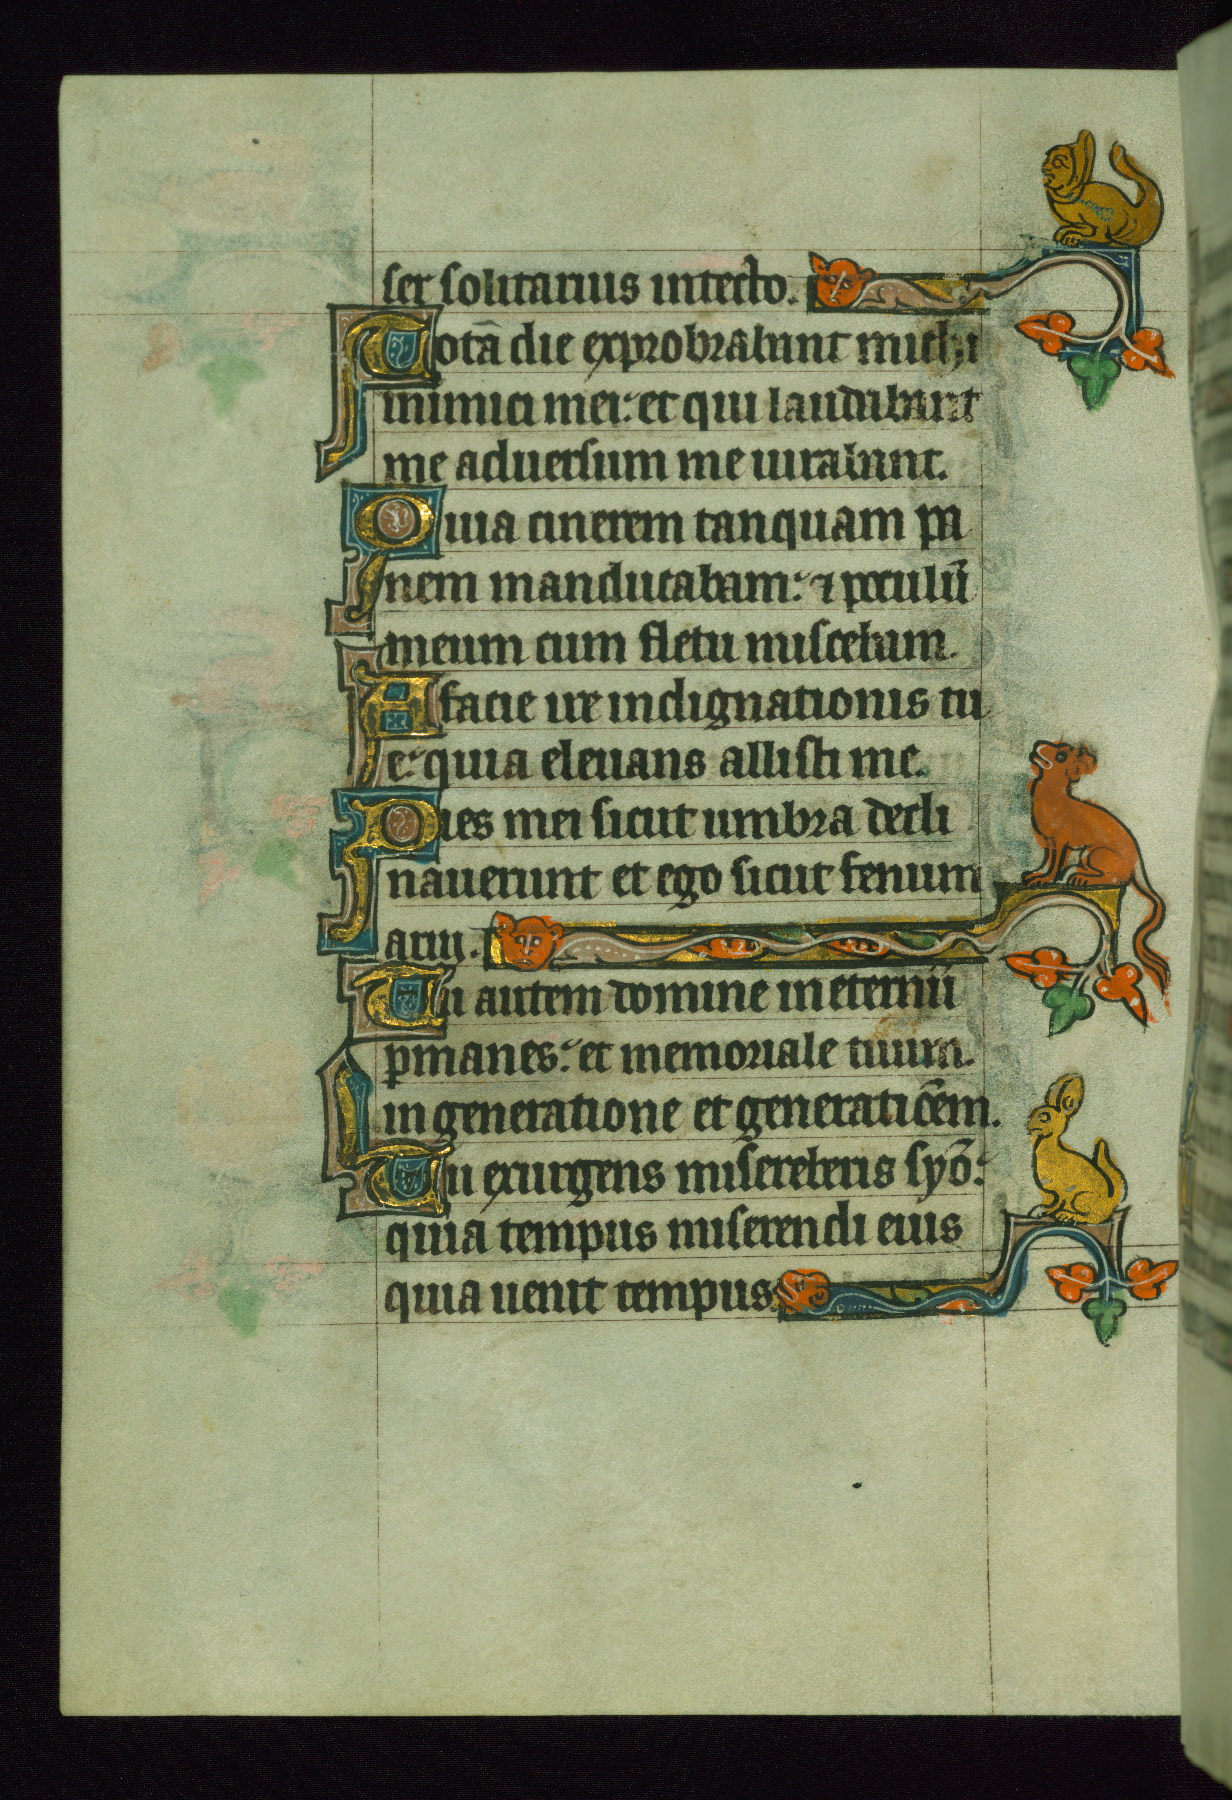 ser solitarius intecto.
Totā die exprobrabant michi
inimici mei: et qui laudabant
me adversum me iurabant.
Quia cinerem tanquam pa
nem manducabam: ⁊ poculū
meum cum fletu miscebam.
A facie ire indignationis tu
e: quia elevans allisti me.
Dies mei sicut umbra decli
naverunt et ego sicut fenum
arui.
Tu autem domine in eternū
pmanes: et memoriale tuum.
in generatione et generatiōem.
Tu exurgens misereberis syō:
quia tempus miserendi eius
quia uenit tempus